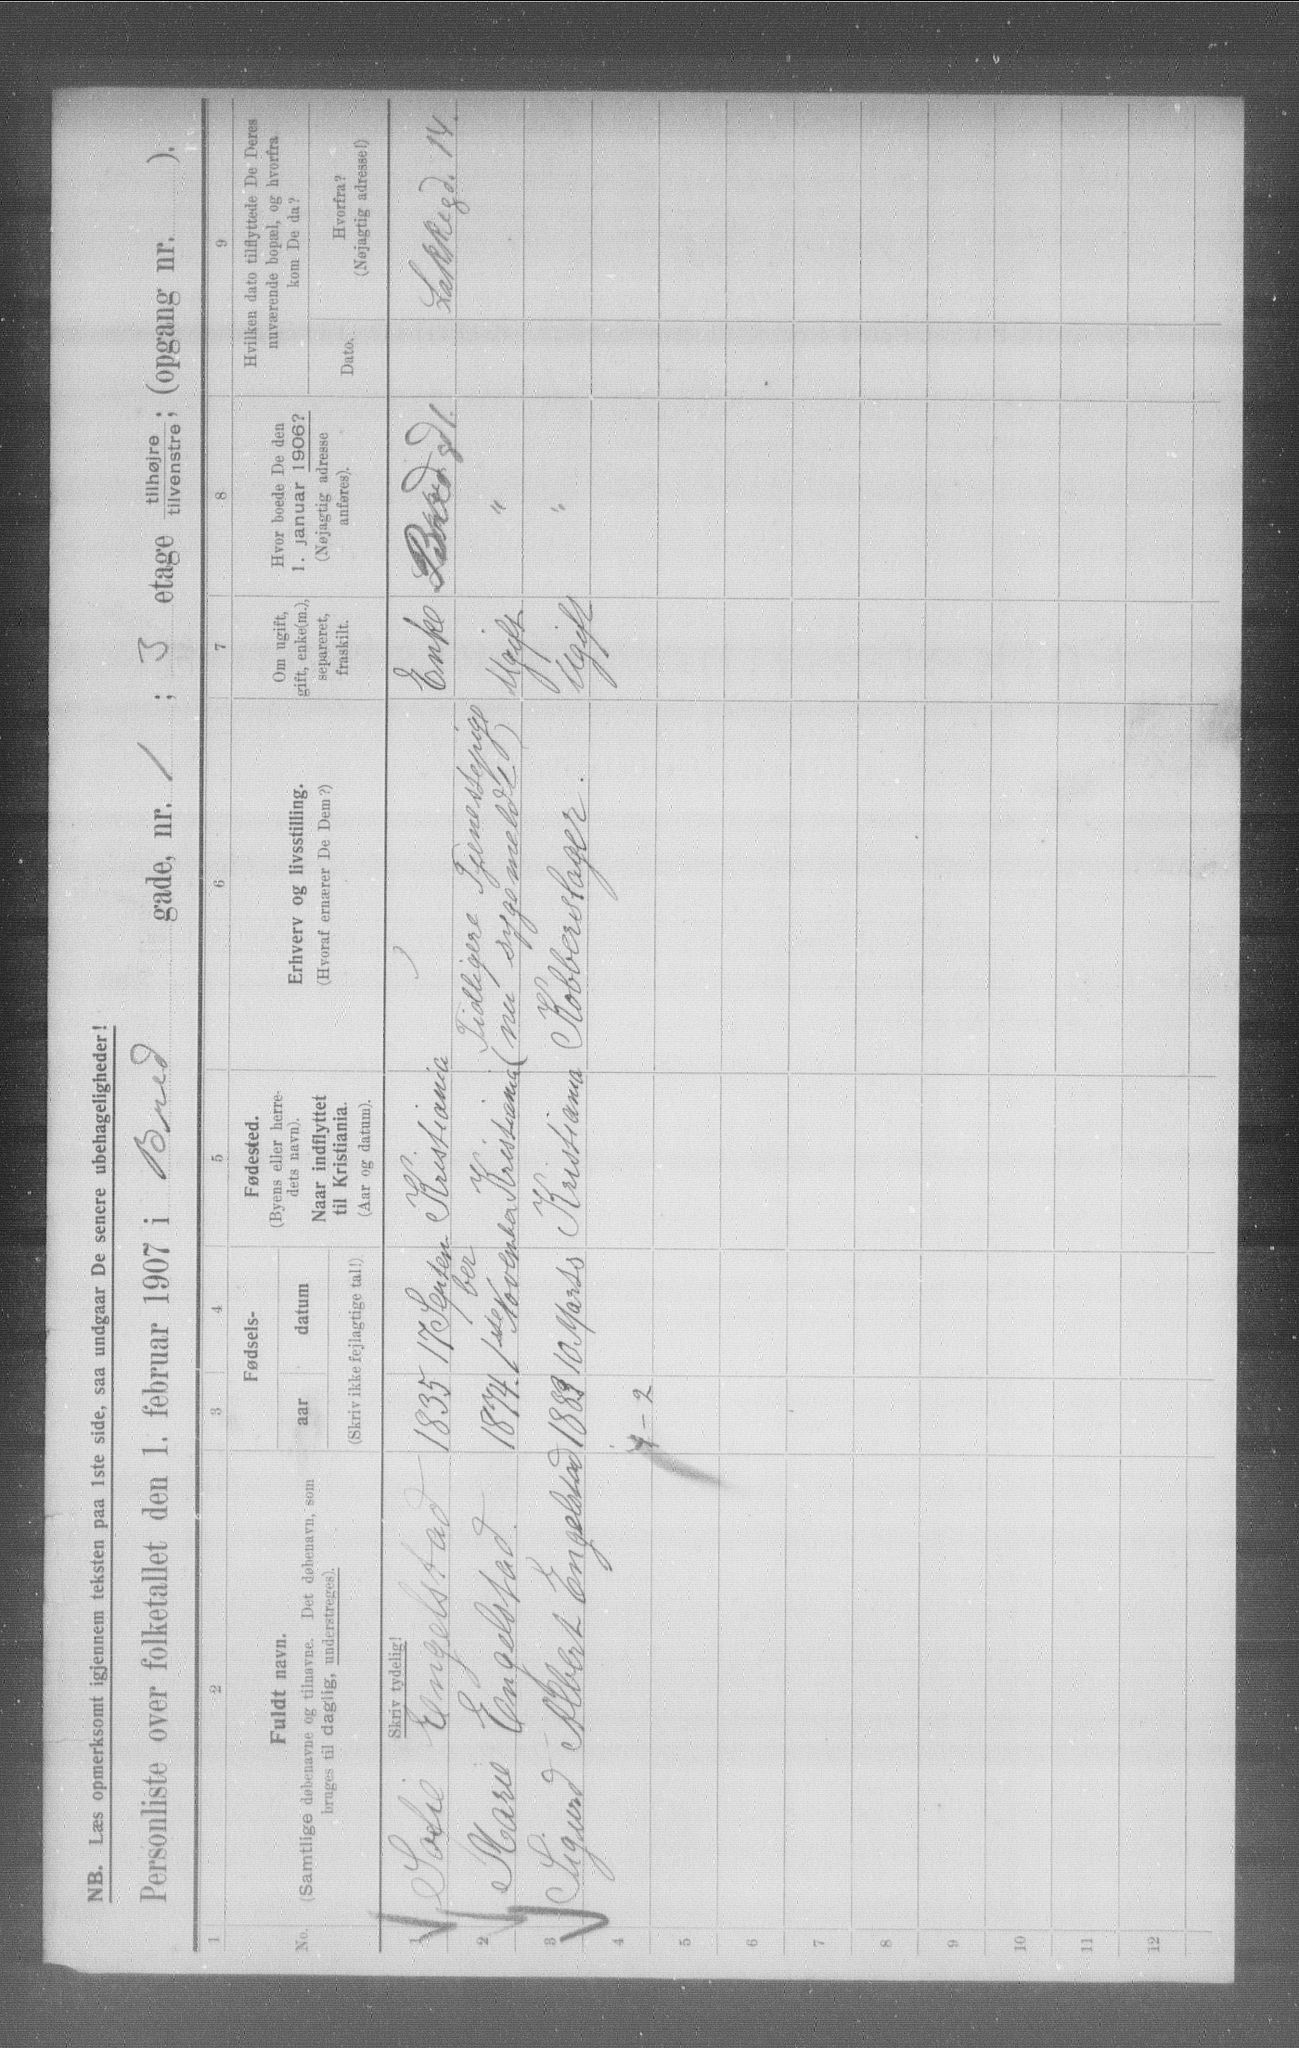 NB. Læs opmerksomt igjennem teksten paa 1ste side, saa undgaar De senere ubehageligheder!
Personliste over folketallet den 1. februar 1907 i Bred gade, nr. 1 ; 3 etage tilhøjre / tilvenstre ; (opgang nr. ).
1 2 3 4 5 6 7 8 9
No.
Fuldt navn.
(Samtlige døbenavne og tilnavne. Det døbenavn, som
bruges til daglig, understreges).
Fødsels-
aar datum
(Skriv ikke fejlagtige tal!)
Fødested.
(Byens eller herre-
dets navn).
Naar indflyttet
til Kristiania.
(Aar og datum).
Erhverv og livsstilling.
(Hvoraf ernærer De Dem?)
Om ugift,
gift, enke(m.),
separeret,
fraskilt.
Hvor boede De den
1. januar 1906?
(Nøjagtig adresse
anføres).
Hvilken dato tilflyttede De Deres
nuværende bopæl, og hvorfra
kom De da?
Dato.
Hvorfra?
(Nøjagtig adresse!)
Skriv tydelig!
1 Sofie Engelstad 1835 17 Septem Kristiania Enke Bredgd 1. Lakkegd. 14.
ber
2 Marie Engelstad. 1874. 1ste November Kristiania Tidligere Tjenestepige Ugift "
(nu sygemeldt)
3 Sigurd Albert Engelstad 1883 10 Marts Kristiania Kobberslager. Ugift "
4
1-2
5
6
7
8
9
10
11
12